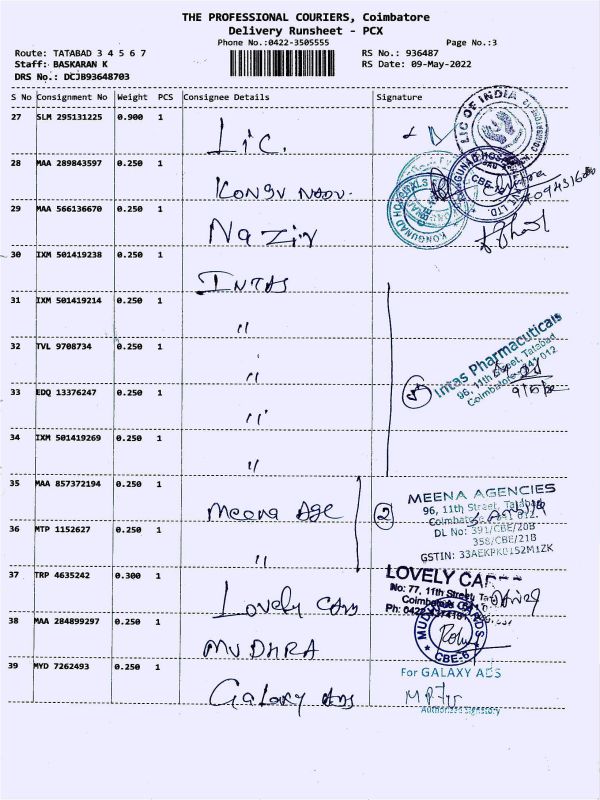 THE PROFESSIONAL COURIERS, Coimbatore
Delivery Runsheet - PCX
Phone No.:0422-3505555
Page No.:3
Route: TATABAD 3 4 5 6 7
RS No.: 936487
Staff: BASKARAN K
RS Date: 09-May-2022
DRS No.: DCJB93648703
S No Consignment No Weight PCS Consignee Details Signature
27 SLM 295131225 0.900 1 LIC.
LIC OF INDIA
28 MAA 289843597 0.250 1
CBE-12
29 MAA 566136670 0.250 1 Nazir
30 IXM 501419238 0.250 1 INTAS
31 IXM 501419214 0.250 1 "
32 TVL 9708734 0.250 1 "
Intas Pharmaceuticals
96, 11th Street, Tatabad
Coimbatore - 641 012
33 EDQ 13376247 0.250 1 "
5
9/5/22
34 IXM 501419269 0.250 1 "
35 MAA 857372194 0.250 1 Meena Age
2
MEENA AGENCIES
96, 11th Street, Tatabad
Coimbatore
DL No: 391/CBE/20B
358/CBE/21B
GSTIN: 33AEKPK0152M1ZK
36 MTP 1152627 0.250 1 "
37 TRP 4635242 0.300 1 Lovely Cards
LOVELY CA
No: 77, 11th Street,
Coimbatore
38 MAA 284899297 0.250 1 MUDHRA
CBE-6
39 MYD 7262493 0.250 1 Galaxy Ads
For GALAXY ADS
Authorized Signatory